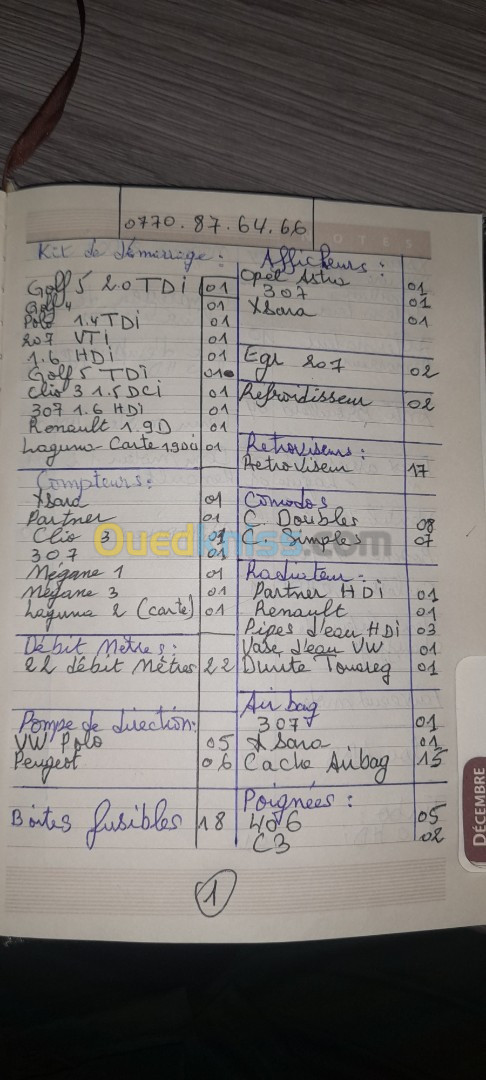 0770.87.64.66
NOTES
Kit de démarrage :
Golf 5 2.0 TDi 01
Golf 4 01
Polo 1.4 TDi 01
207 VTi 01
1.6 HDi 01
Golf 5 TDi 01
Clio 3 1.5 DCi 01
307 1.6 HDi 01
Renault 1.9D 01
Laguna Carte 1.9 Dci 01
Compteurs :
Xsara 01
Partner 01
Clio 3 01
307 01
Mégane 1 01
Mégane 3 01
Laguna 2 (carte) 01
Débit Mètres :
22 débit Mètres 22
Pompe de direction :
VW Polo 05
Peugeot 06
Boites fusibles 18
Afficheurs :
Opel Astra 01
307 01
Xsara 01
Egr 207 02
Refroidisseur 02
Retroviseurs :
Retroviseur 17
Comodos
C. Doubles 08
C. Simples 07
Radiateur :
Partner HDi 01
Renault 01
Pipes d'eau HDi 03
Vase d'eau VW 01
Durite Touareg 01
Air bag
307 01
Xsara 01
Cache Airbag 15
Poignées :
406 05
C3 02
1
DÉCEMBRE
Ouedkniss.com